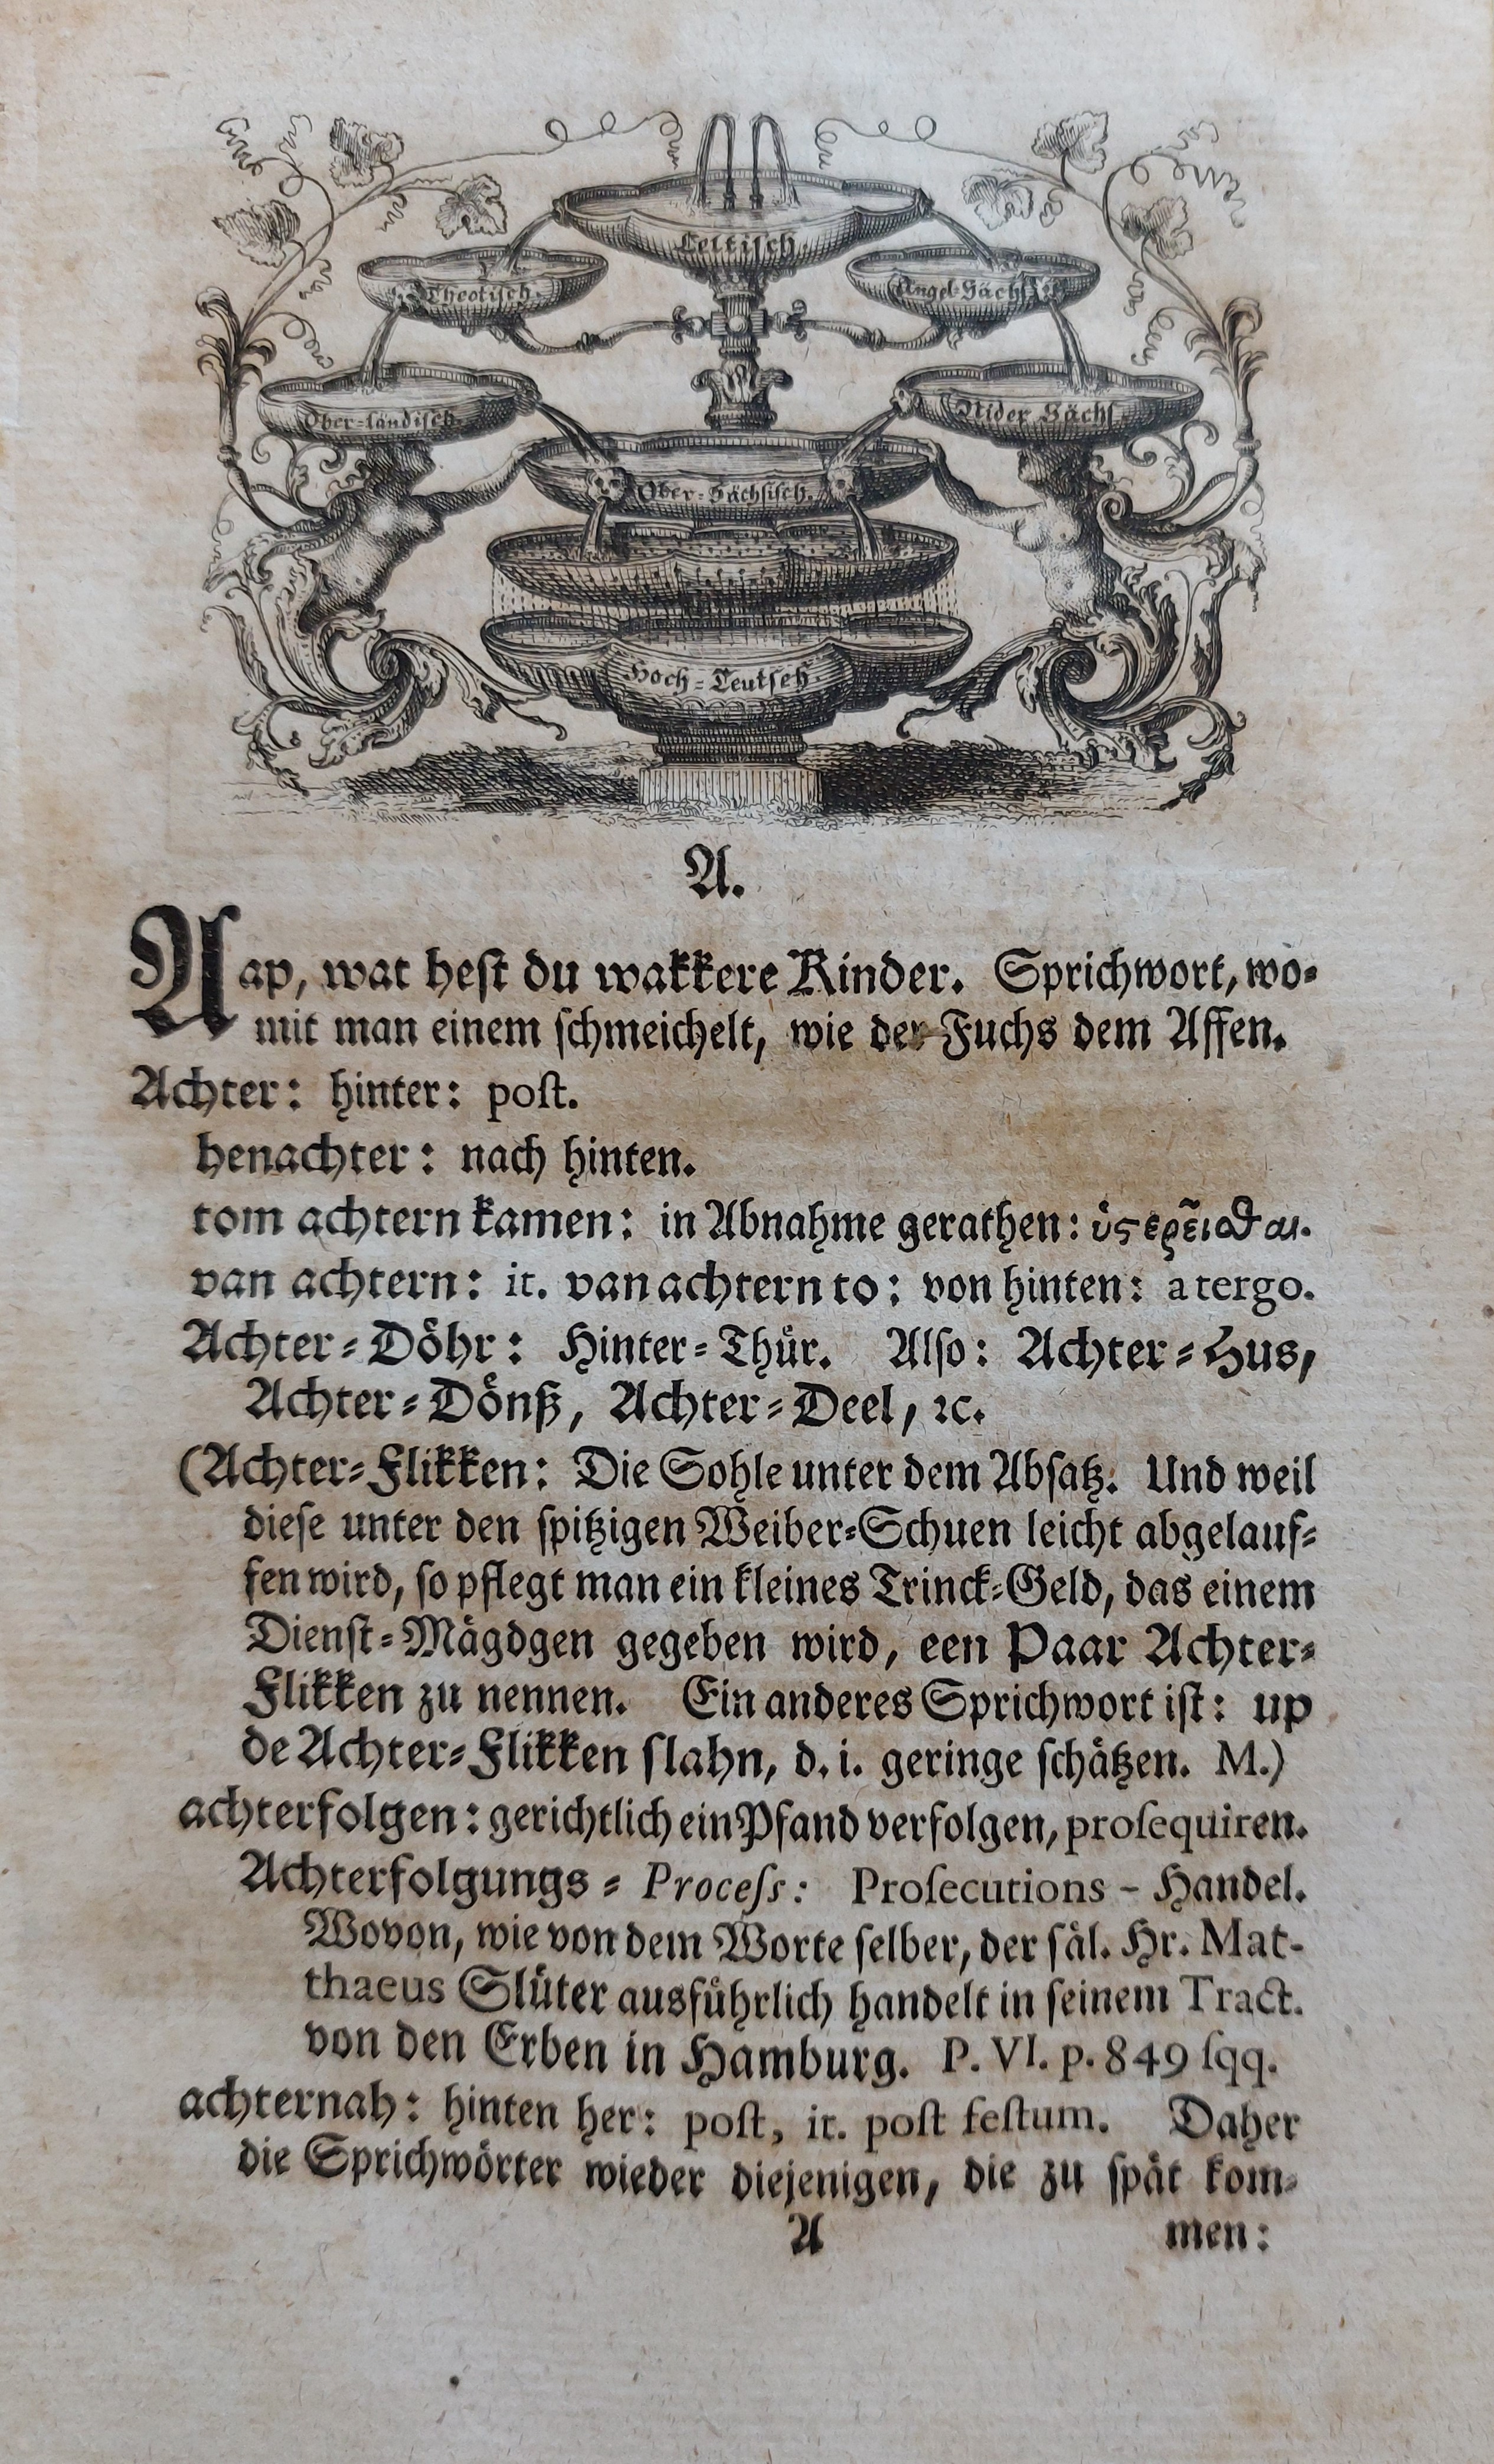 Celtisch.
Theotisch.
Angel-Sächs
Ober-ländisch.
Nider Sächs.
Ober-Sächsisch.
Hoch-Teutsch
A.
Aap, wat hest du wakkere Kinder. Sprichwort, wo-
mit man einem schmeichelt, wie der Fuchs dem Affen.
Achter: hinter: post.
henachter: nach hinten.
tom achtern kamen: in Abnahme gerathen: ὑστερεῖσθαι.
van achtern: it. van achtern to: von hinten: a tergo.
Achter-Döhr: Hinter-Thür. Also: Achter-Hus,
Achter-Dönß, Achter-Deel, ꝛc.
(Achter-Flikken: Die Sohle unter dem Absatz. Und weil
diese unter den spitzigen Weiber-Schuen leicht abgelauf-
fen wird, so pflegt man ein kleines Trinck-Geld, das einem
Dienst-Mägdgen gegeben wird, een Paar Achter-
Flikken zu nennen. Ein anderes Sprichwort ist: up
de Achter-Flikken slahn, d. i. geringe schätzen. M.)
achterfolgen: gerichtlich ein Pfand verfolgen, prosequiren.
Achterfolgungs-Process: Prosecutions-Handel.
Wovon, wie von dem Worte selber, der säl. Hr. Mat-
thaeus Slüter ausführlich handelt in seinem Tract.
von den Erben in Hamburg. P. VI. p. 849 sqq.
achternah: hinten her: post, it. post festum. Daher
die Sprichwörter wieder diejenigen, die zu spät kom-
A men: